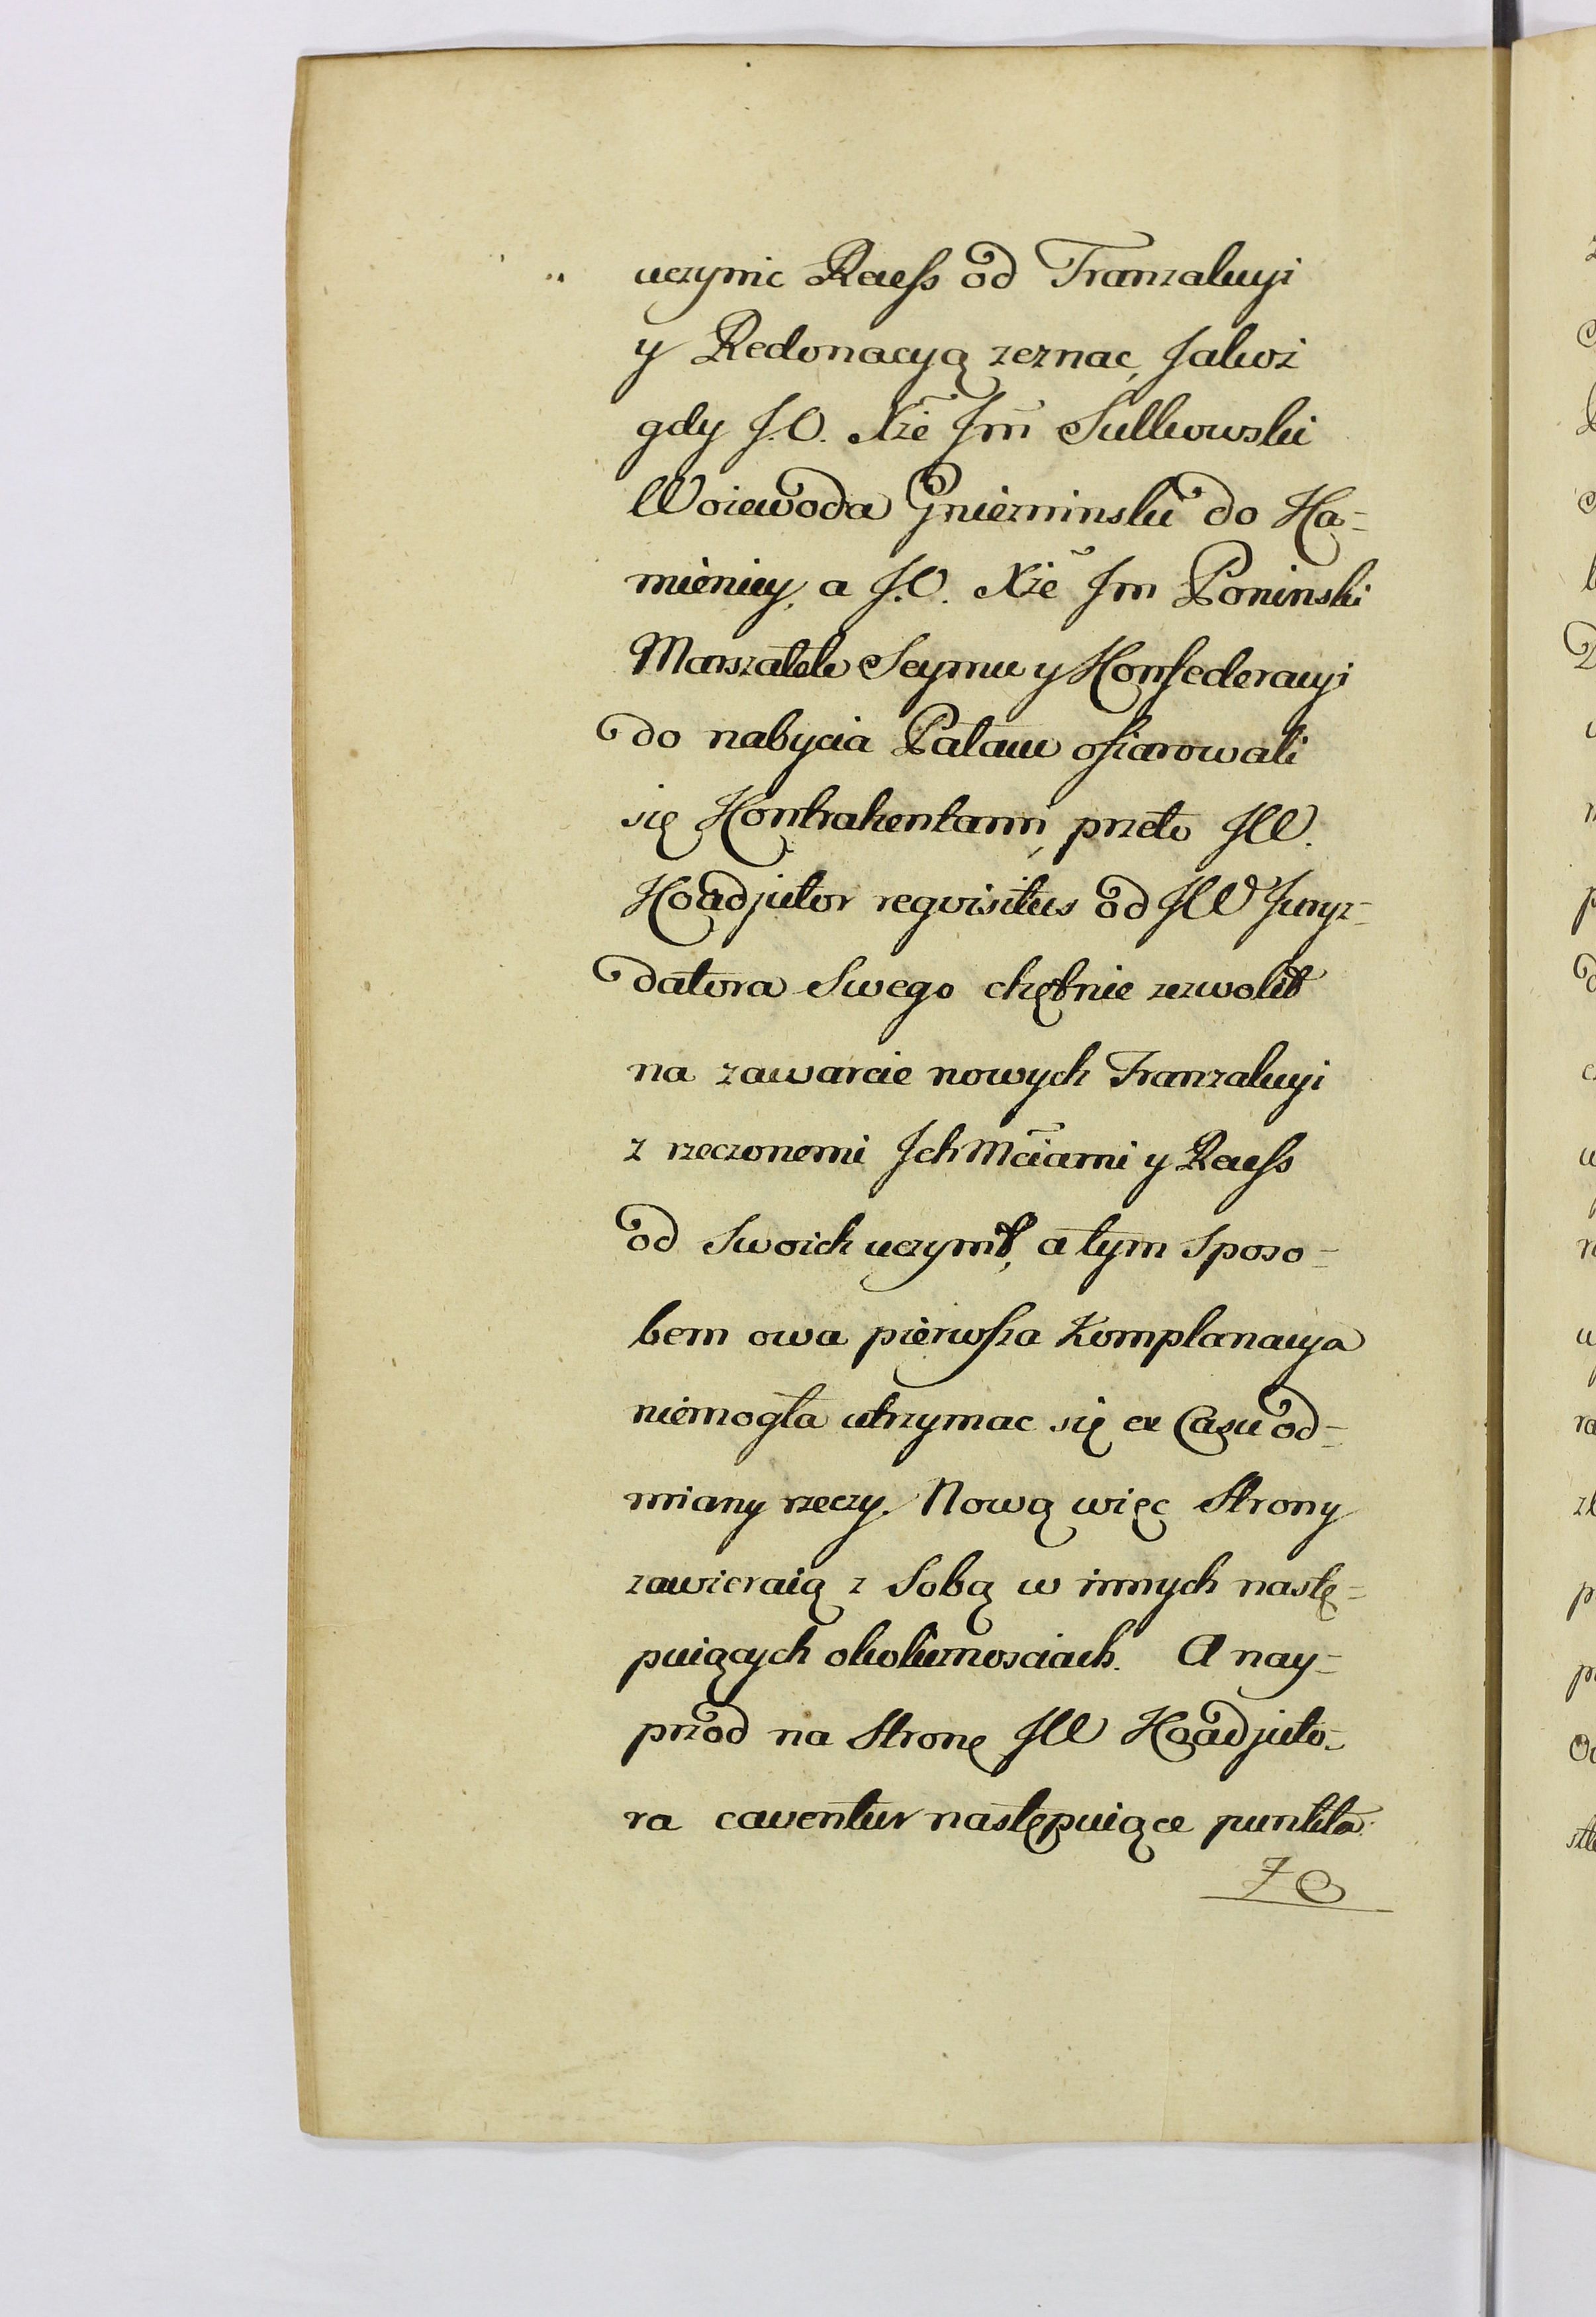 uczynic Recess od Tranzakcyi
y Redonacyą zeznac, Jakoż
gdy J.O. Xże Jm̃ Sulkowski
Woiewoda Gniezninski do Ka=
mienicy, a J.O. Xże Jm Poninski
Marszałek Seymu y Konfederacyi
do nabycia Pałacu ofiarowali
się Kontrahentami, przeto JW.
Koadjutor reqvisitus od JW Juryz=
datora Swego chętnie zezwolił
na zawarcie nowych Tranzakcyi
z rzeczonemi Ich Mciami y Recess
od Swoich uczynił, a tym Sposo=
bem owa pierwsza Komplanacya
niemogła utrzymac się ex Casu od=
miany rzeczy. Nową więc Strony
zawieraią z Sobą w innych nastę=
puiących okolicznosciach. A nay=
przod na Stronę JW Koadjuto=
ra caventur następuiące punkta: